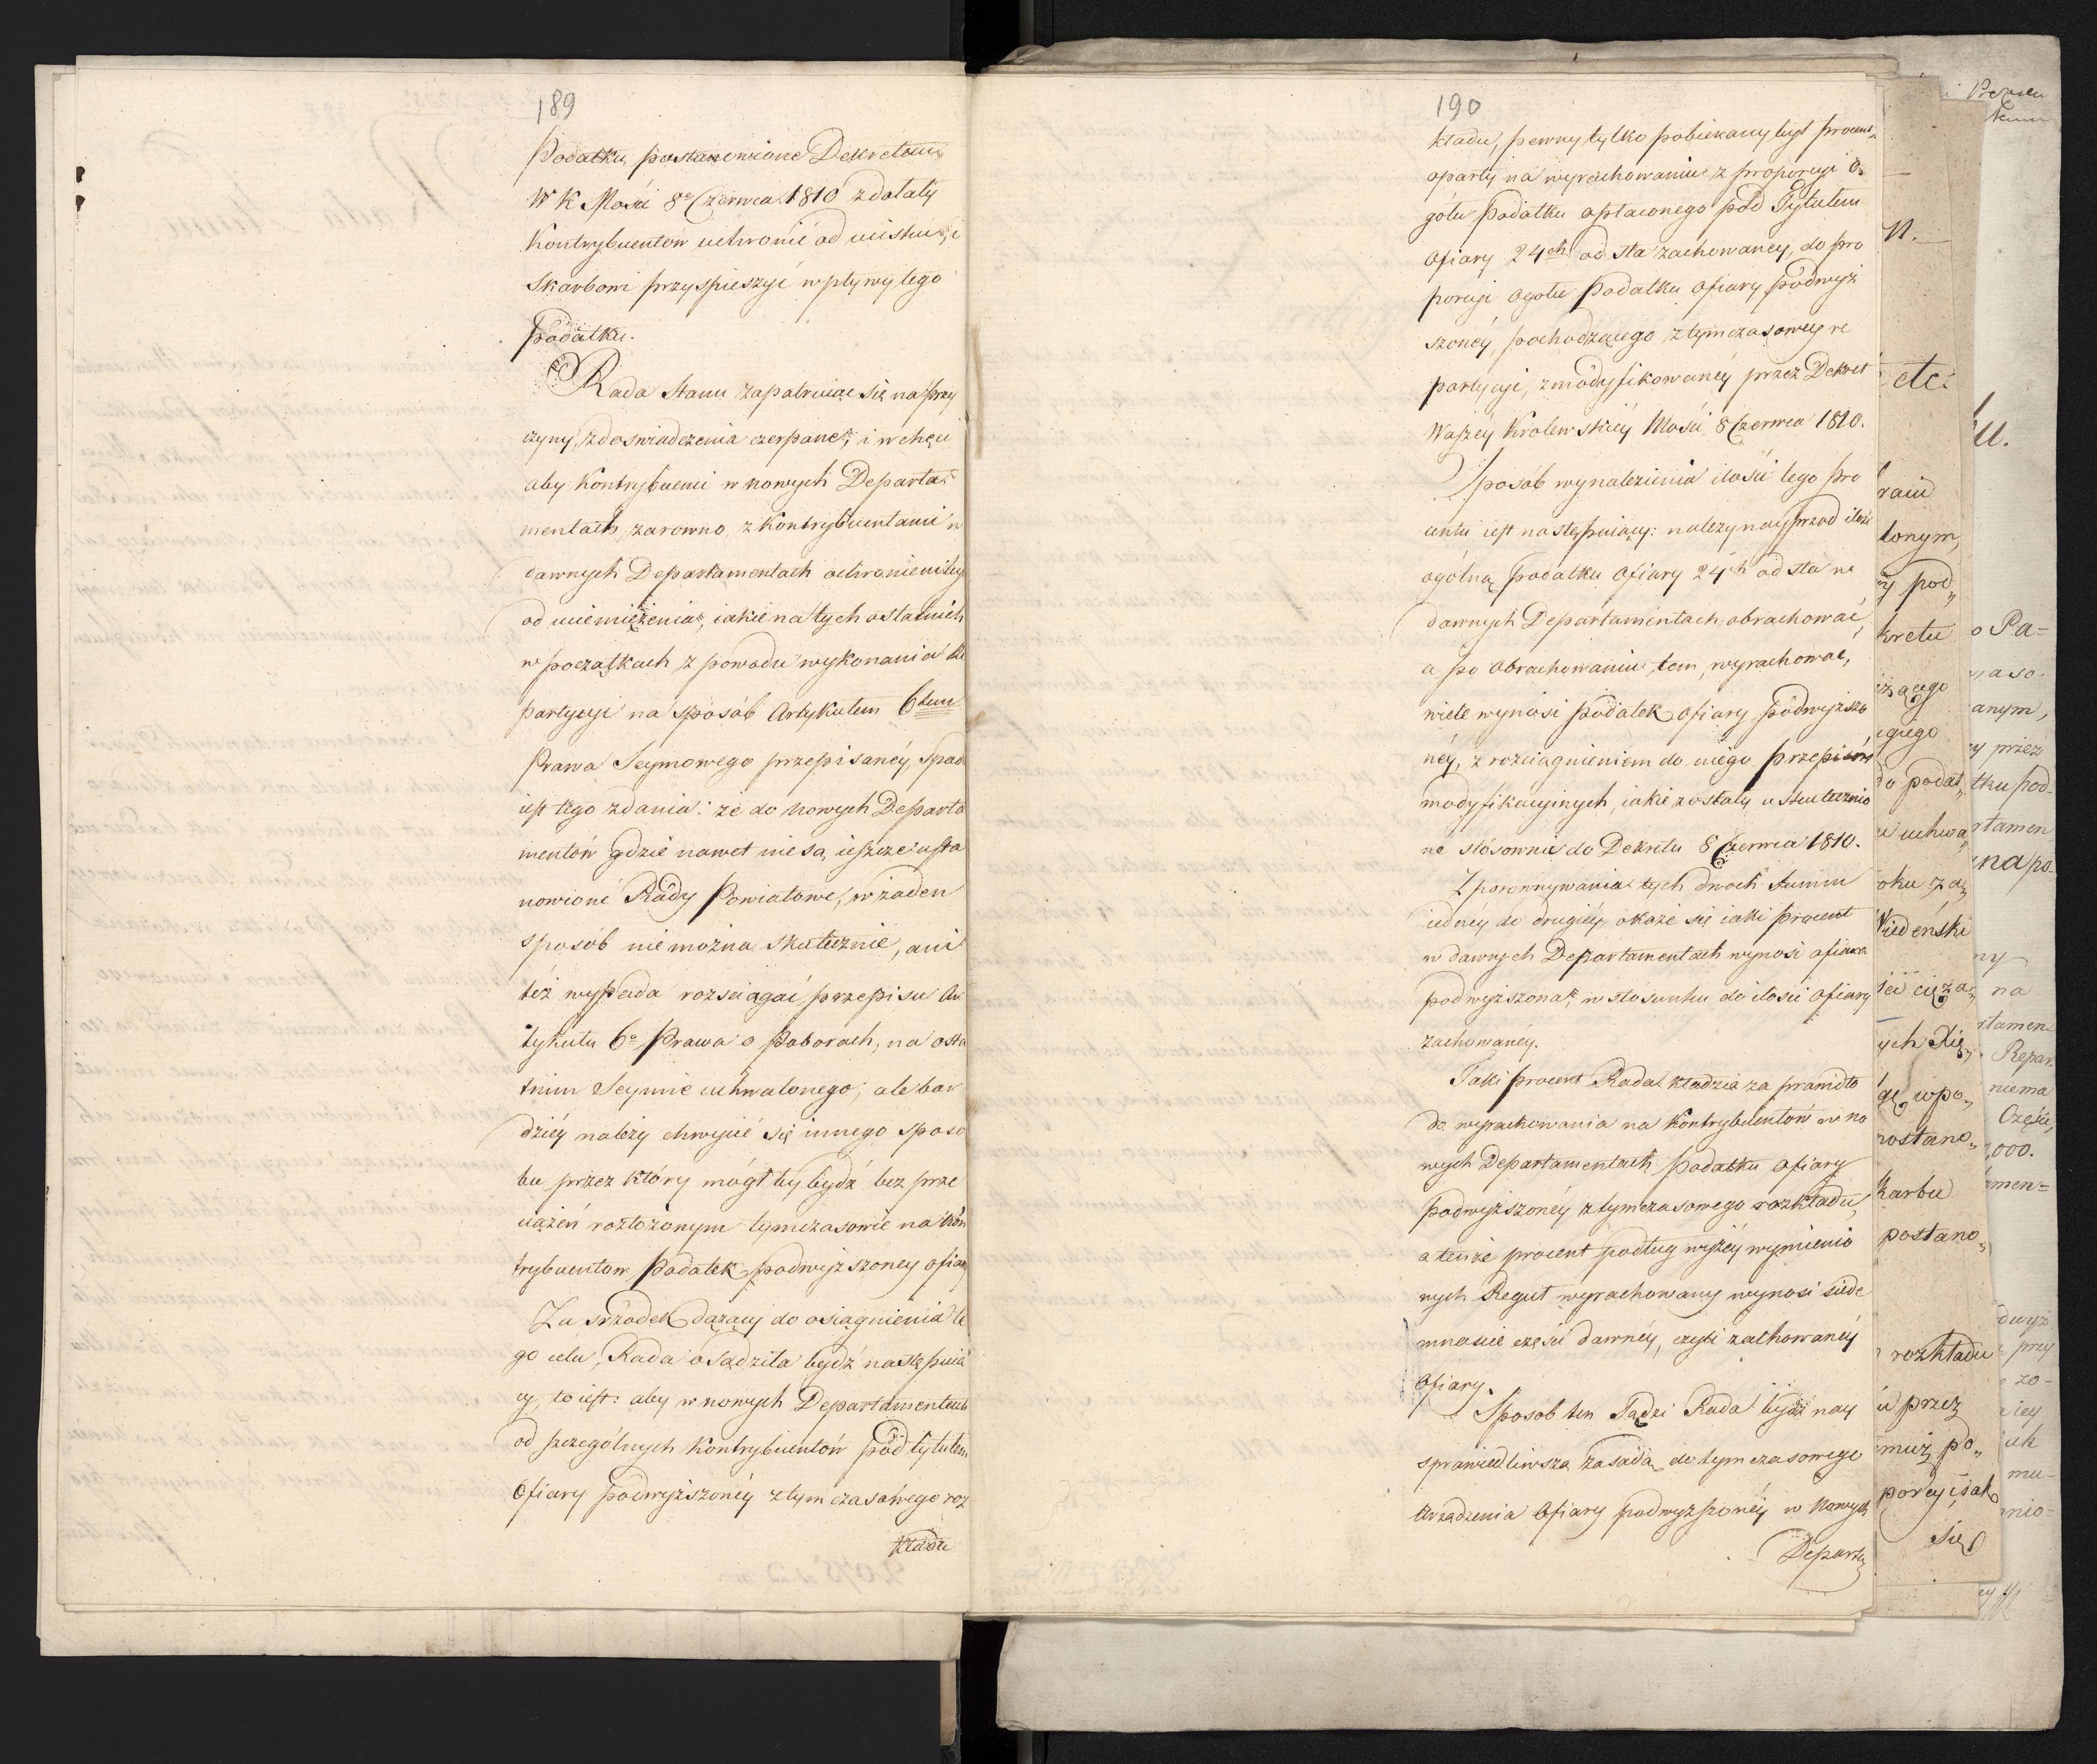 189
Podatku, postanowione Dekretem
W K Mości 8º Czerwca 1810 zdołały
Kontrybuentow uchronić od ucisku, i
Skarbowi przyspieszyć wpływy tego
Podatku.
Rada Stanu zapatruiąc się na przy
czyny, z doswiadczenia czerpane, i w chęci
aby Kontrybuenci w nowych Departa„
mentach, zarowno z Kontrybuentami w
dawnych Departamentach ochronieni byli
od uciemiężenia, iakie na tych ostatnich
w początkach, z powodu wykonania Re
partycyi na sposób Artykułem 6tym
Prawa Seymowego przepisanéy, spadł
iest tego zdania: że do nowych Departa
mentów gdzie nawet nie są ieszcze usta
nowione Rady Powiatowe, w żaden
sposób nie można skutecznie, ani
téż wypada rozciągać przepisu Ar
tykułu 6º Prawa o Poborach, na osta
tnim Seymie uchwalonego; ale bar
dziéy należy chwycić się innego sposo
bu przez który mógł by bydź bez prze
ciążeń rozłożonym tymczasowie na Kon
trybuentow Podatek podwyższoney ofiary
Za srzodek dążący do osiągnienia te
go celu, Rada osądziła bydź następuią
cy, to iest: aby w nowych Departamentach
od szczególnych Kontrybuentów pod tytułem
Ofiary podwyższonéy z tymczasowego roz
kładu
190
kładu, pewny tylko pobierany był procent,
oparty na wyrachowaniu z proporcyi o„
gółu Podatku opłaconego pod Tytułem
Ofiary 24ch od sta zachowaney, do pro
porcyi ogółu Podatku ofiary podwyż
szonéy, pochodzącego z tymczasowey re
partycyi, zmodyfikowanéy przez Dekret
Waszey Krolewskiéy Mości 8 Czerwca 1810.
Sposób wynalezienia ilości tego pro
centu iest następuiący: należy nayprzod ilość
ogólną Podatku Ofiary 24ch od sta w
dawnych Departamentach obrachować,
a po obrachowaniu tem, wyrachować,
wiele wynosi Podatek ofiary podwyższo
néy, z rozciągnieniem do niego przepisów
modyfikacyinych, iakie zostały uskutecznio
ne stósownie do Dekretu 8 Czerwca 1810.
Z porownywania tych dwoch summ
iednéy do drugiéy, okaże się iaki procent
w dawnych Departamentach wynosi ofiara
podwyższona, w stósunku do ilości Ofiary
zachowanéy.
Taki procent Rada kładzie za prawidło
do wyrachowania na Kontrybuentów w no
wych Departamentach Podatku ofiary
podwyższonéy z tymczasowego rozkładu,
a tenże procent podług wyżéy wymienio
nych Reguł wyrachowany wynosi siede
mnaście części dawnéy, czyli zachowanéy
Ofiary.
Sposob ten Sądzi Rada bydź nay
sprawiedliwszą zasadą do tymczasowego
urządzenia Ofiary podwyższonéy w Nowych
Departa„
etc:
tonym,
pod„
kretu
uchwa„
oku za„
Wiedeński
wpo„
postano„
rozkładu
przez
po„
się
o Pa=
anym,
przez
na po
na
Repar.
niema
Części,